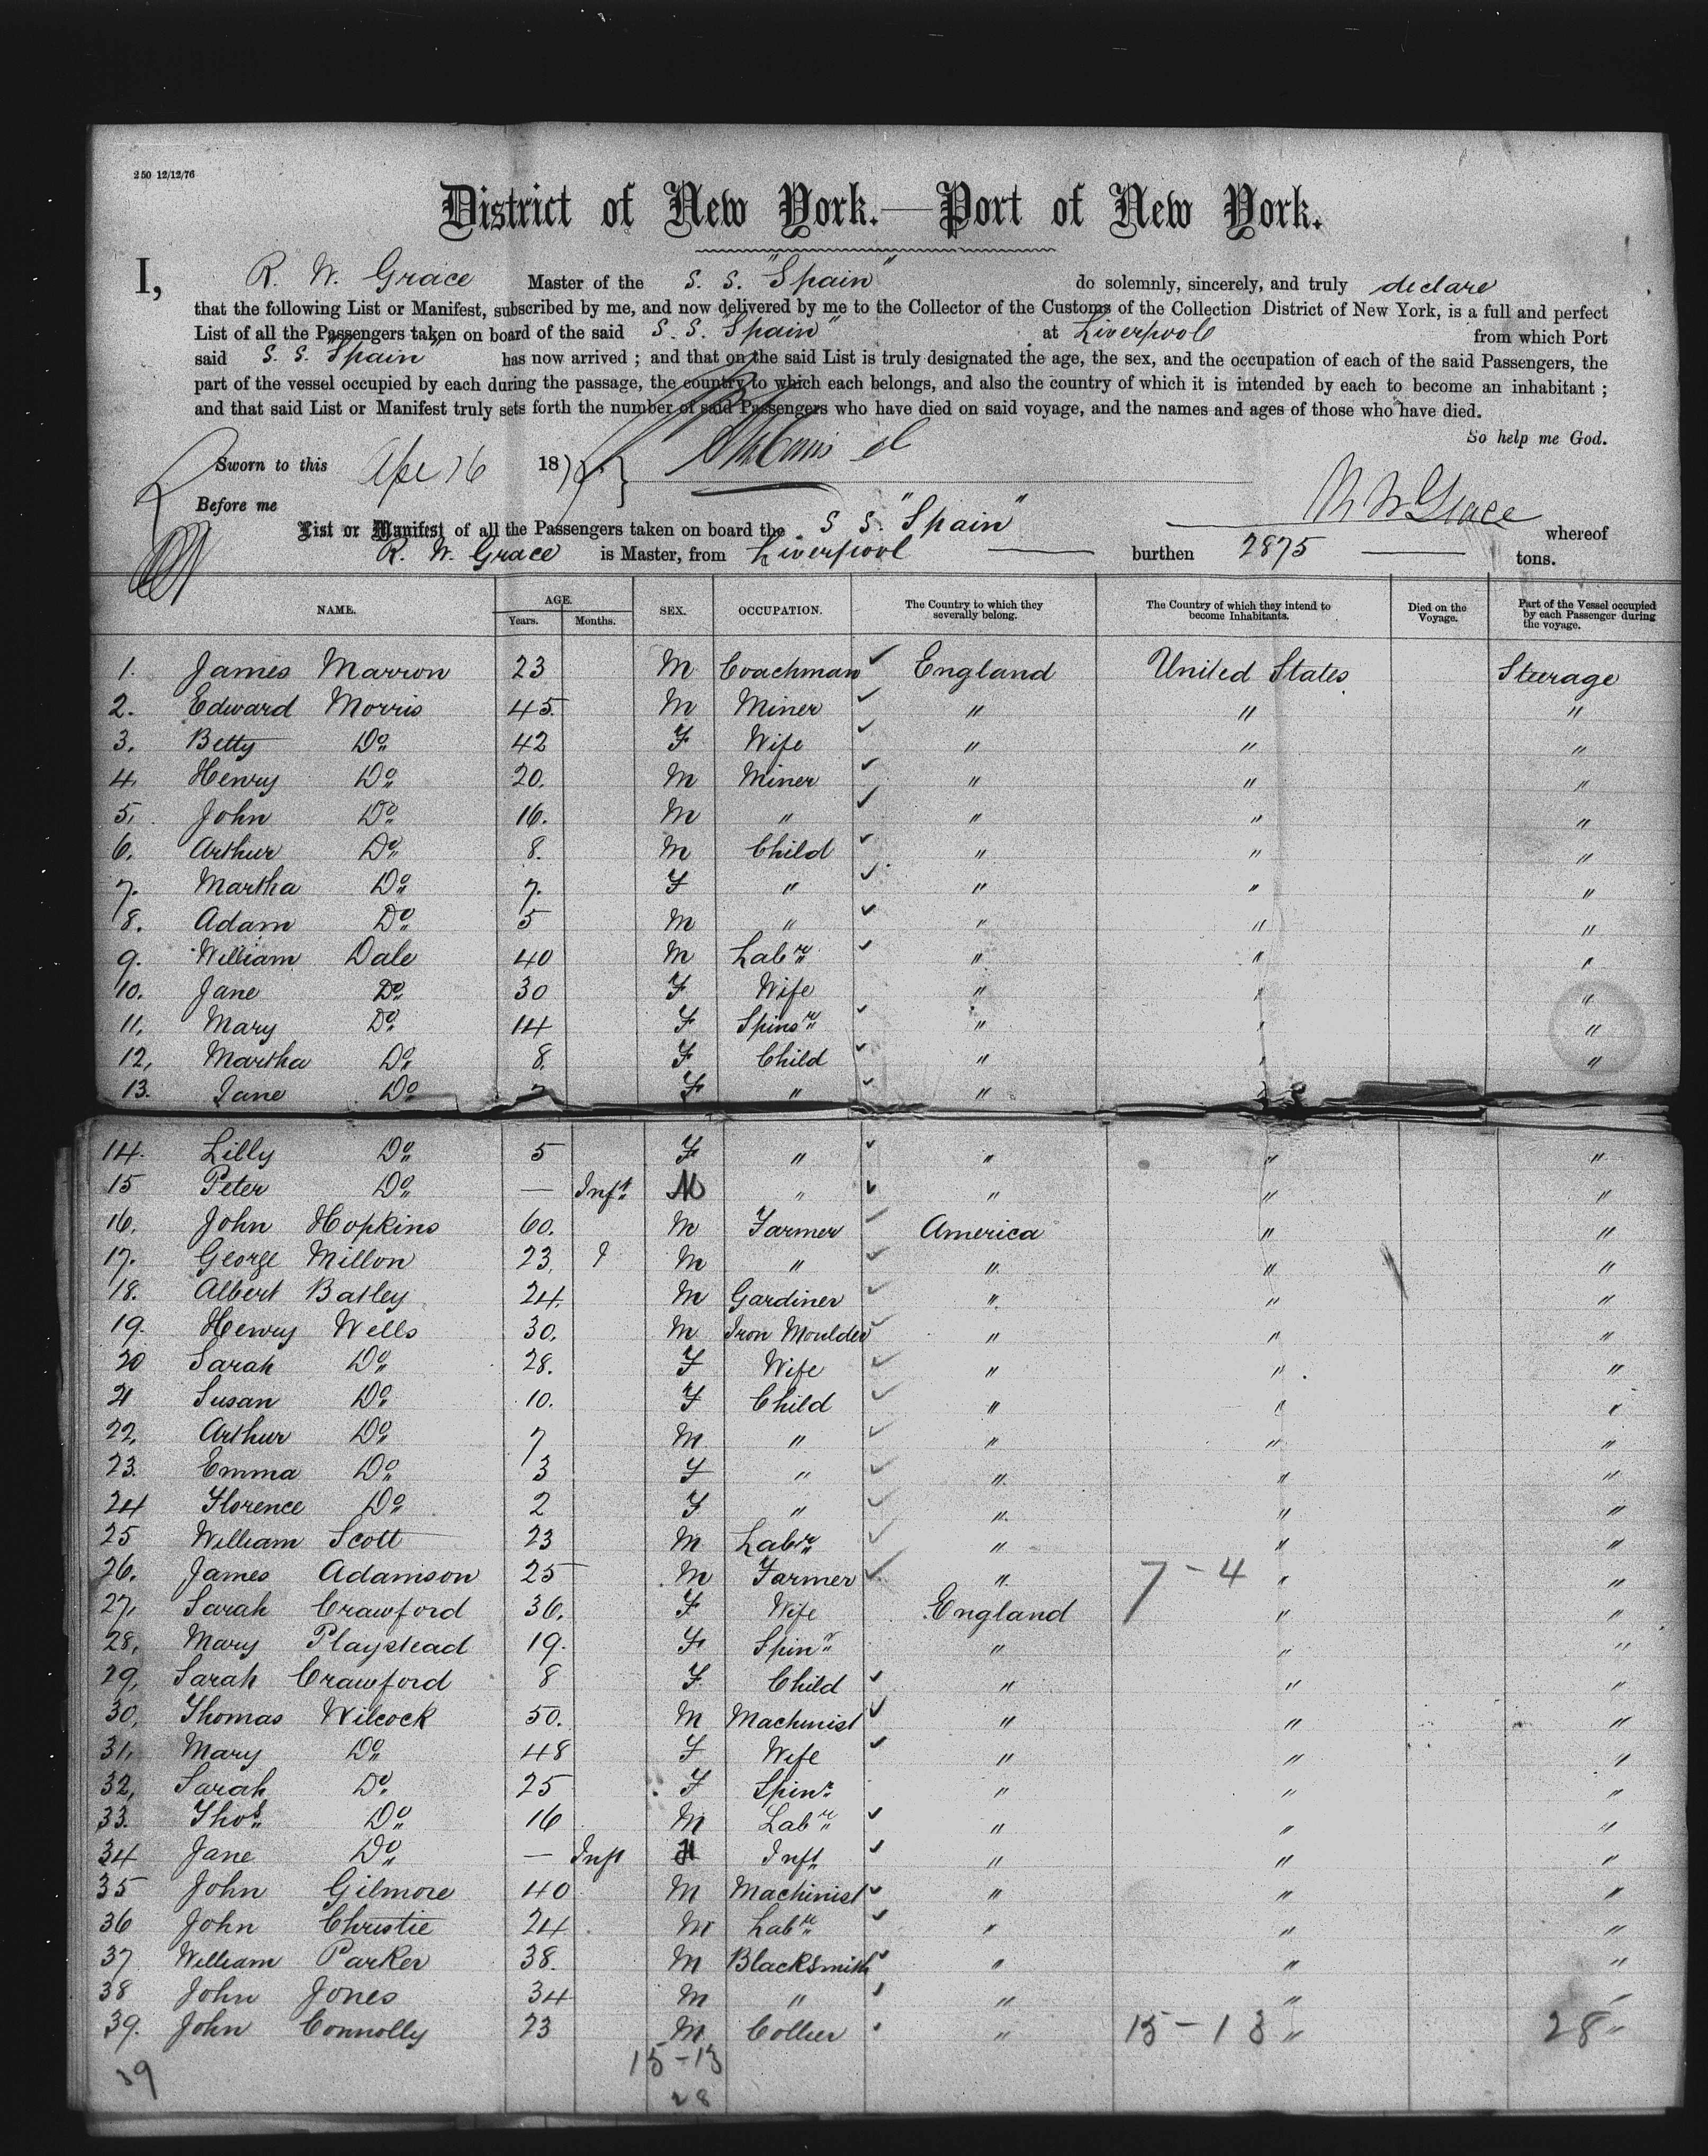 250 12/12/76
District of New York.—Port of New York.
I, R. W. Grace Master of the S. S. "Spain" do solemnly, sincerely, and truly declare
that the following List or Manifest, subscribed by me, and now delivered by me to the Collector of the Customs of the Collection District of New York, is a full and perfect
List of all the Passengers taken on board of the said S. S. "Spain" at Liverpool from which Port
said S. S. "Spain" has now arrived ; and that on the said List is truly designated the age, the sex, and the occupation of each of the said Passengers, the
part of the vessel occupied by each during the passage, the country to which each belongs, and also the country of which it is intended by each to become an inhabitant ;
and that said List or Manifest truly sets forth the number of said Passengers who have died on said voyage, and the names and ages of those who have died.
So help me God.
Sworn to this 16 18
Before me R W Grace
List or Manifest of all the Passengers taken on board the S S. "Spain" whereof
R. W. Grace is Master, from Liverpool burthen 2875 tons.
NAME. AGE. Years. Months. SEX. OCCUPATION. The Country to which they severally belong. The Country of which they intend to become Inhabitants. Died on the Voyage. Part of the Vessel occupied by each Passenger during the voyage.
1. James Marron 23 M Coachman ✓ England United States Steerage
2. Edward Morris 45. M Miner ✓ " " "
3. Betty Do 42 F Wife ✓ " " "
4. Henry Do 20. M Miner ✓ " " "
5. John Do 16. M " ✓ " " "
6. Arthur Do 8. M Child ✓ " " "
7. Martha Do 7. F " ✓ " " "
8. Adam Do 5 M " ✓ " " "
9. William Dale 40 M Labr ✓ " " "
10. Jane Do 30 F Wife " " "
11. Mary Do 14 F Spinsr ✓ " " "
12, Martha Do 8. F Child ✓ " " "
13. Jane Do F " ✓ "
14. Lilly Do 5 F " ✓ " " "
15 Peter Do — Inft M " ✓ " " "
16. John Hopkins 60. M Farmer ✓ America " "
17. George Millon 23, M " ✓ " " "
18. Albert Batley 24. M Gardiner ✓ " " "
19. Henry Wells 30. M Iron Moulder ✓ " " "
20 Sarah Do 28. F Wife ✓ " " "
21 Susan Do 10. F Child ✓ " " "
22, Arthur Do 7 M " ✓ " " "
23. Emma Do 3 F " ✓ " " "
24 Florence Do 2 F " ✓ " " "
25 William Scott 23 M Labr ✓ " " "
26. James Adamson 25 M Farmer ✓ " 7 - 4 " "
27, Sarah Crawford 36. F Wife England " "
28, Mary Playstead 19. F Spinr " " "
29, Sarah Crawford 8 F Child ✓ " " "
30, Thomas Wilcock 50. M Machinist ✓ " " "
31, Mary Do 48 F Wife ✓ " " "
32, Sarah Do 25 F Spinr " " "
33. Thos Do 16 M Labr ✓ " " "
34 Jane Do — Inft Inft ✓ " " "
35 John Gilmore 40 M Machinist ✓ " " "
36 John Christie 24 M Labr ✓ " " "
37 William Parker 38. M Blacksmith ✓ " " "
38 John Jones 34 M " ✓ " " "
39. John Connolly 23 M Collier " 15 - 13 " 28 "
39 15 - 13
28